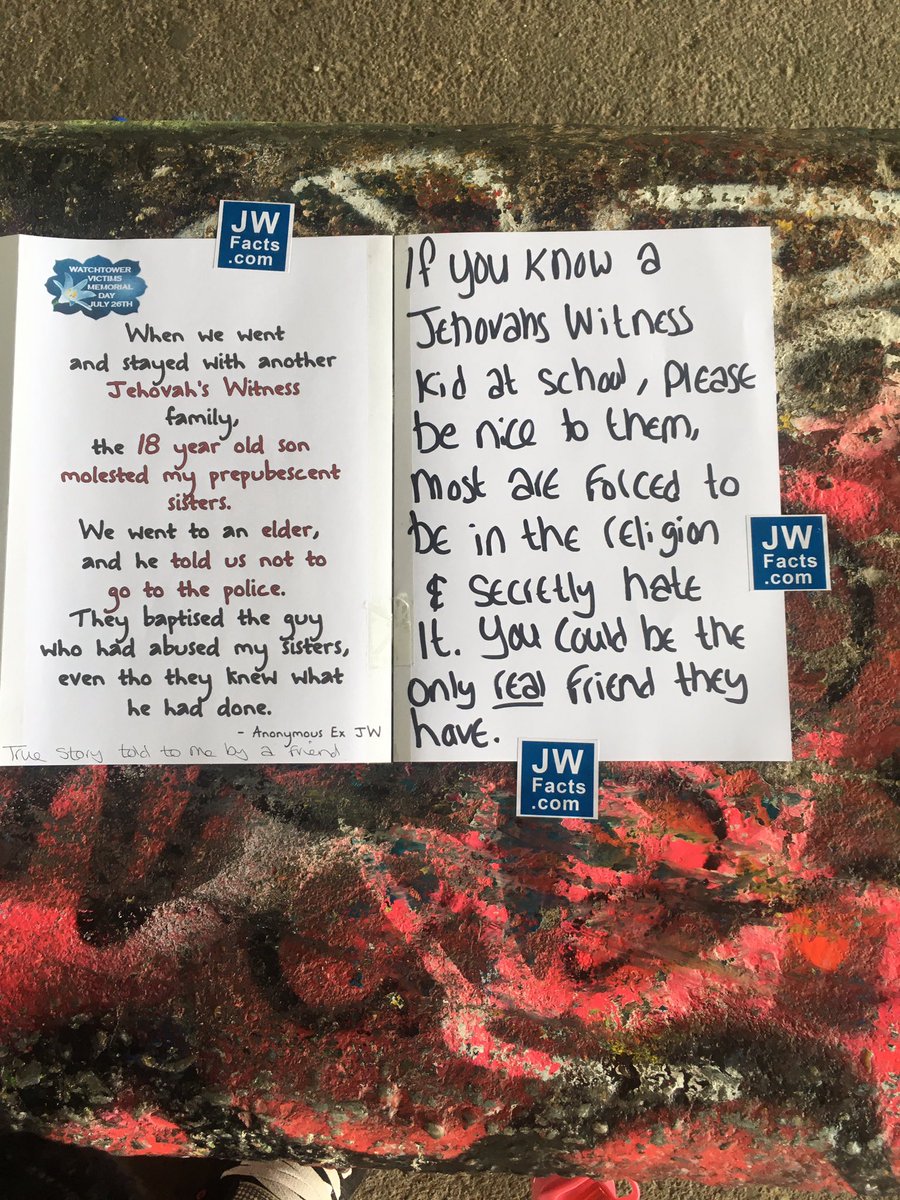 JW
Facts
.com
WATCHTOWER
VICTIMS
MEMORIAL
DAY
JULY 26TH
When we went
and stayed with another
Jehovah's Witness
family,
the 18 year old son
molested my prepubescent
sisters.
We went to an elder,
and he told us not to
go to the police.
They baptised the guy
who had abused my sisters,
even tho they knew what
he had done.
- Anonymous Ex JW
True story told to me by a friend
If you know a
Jehovahs Witness
kid at school, please
be nice to them,
most are forced to
be in the religion
& secretly hate
it. You could be the
only real friend they
have.
JW
Facts
.com
JW
Facts
.com